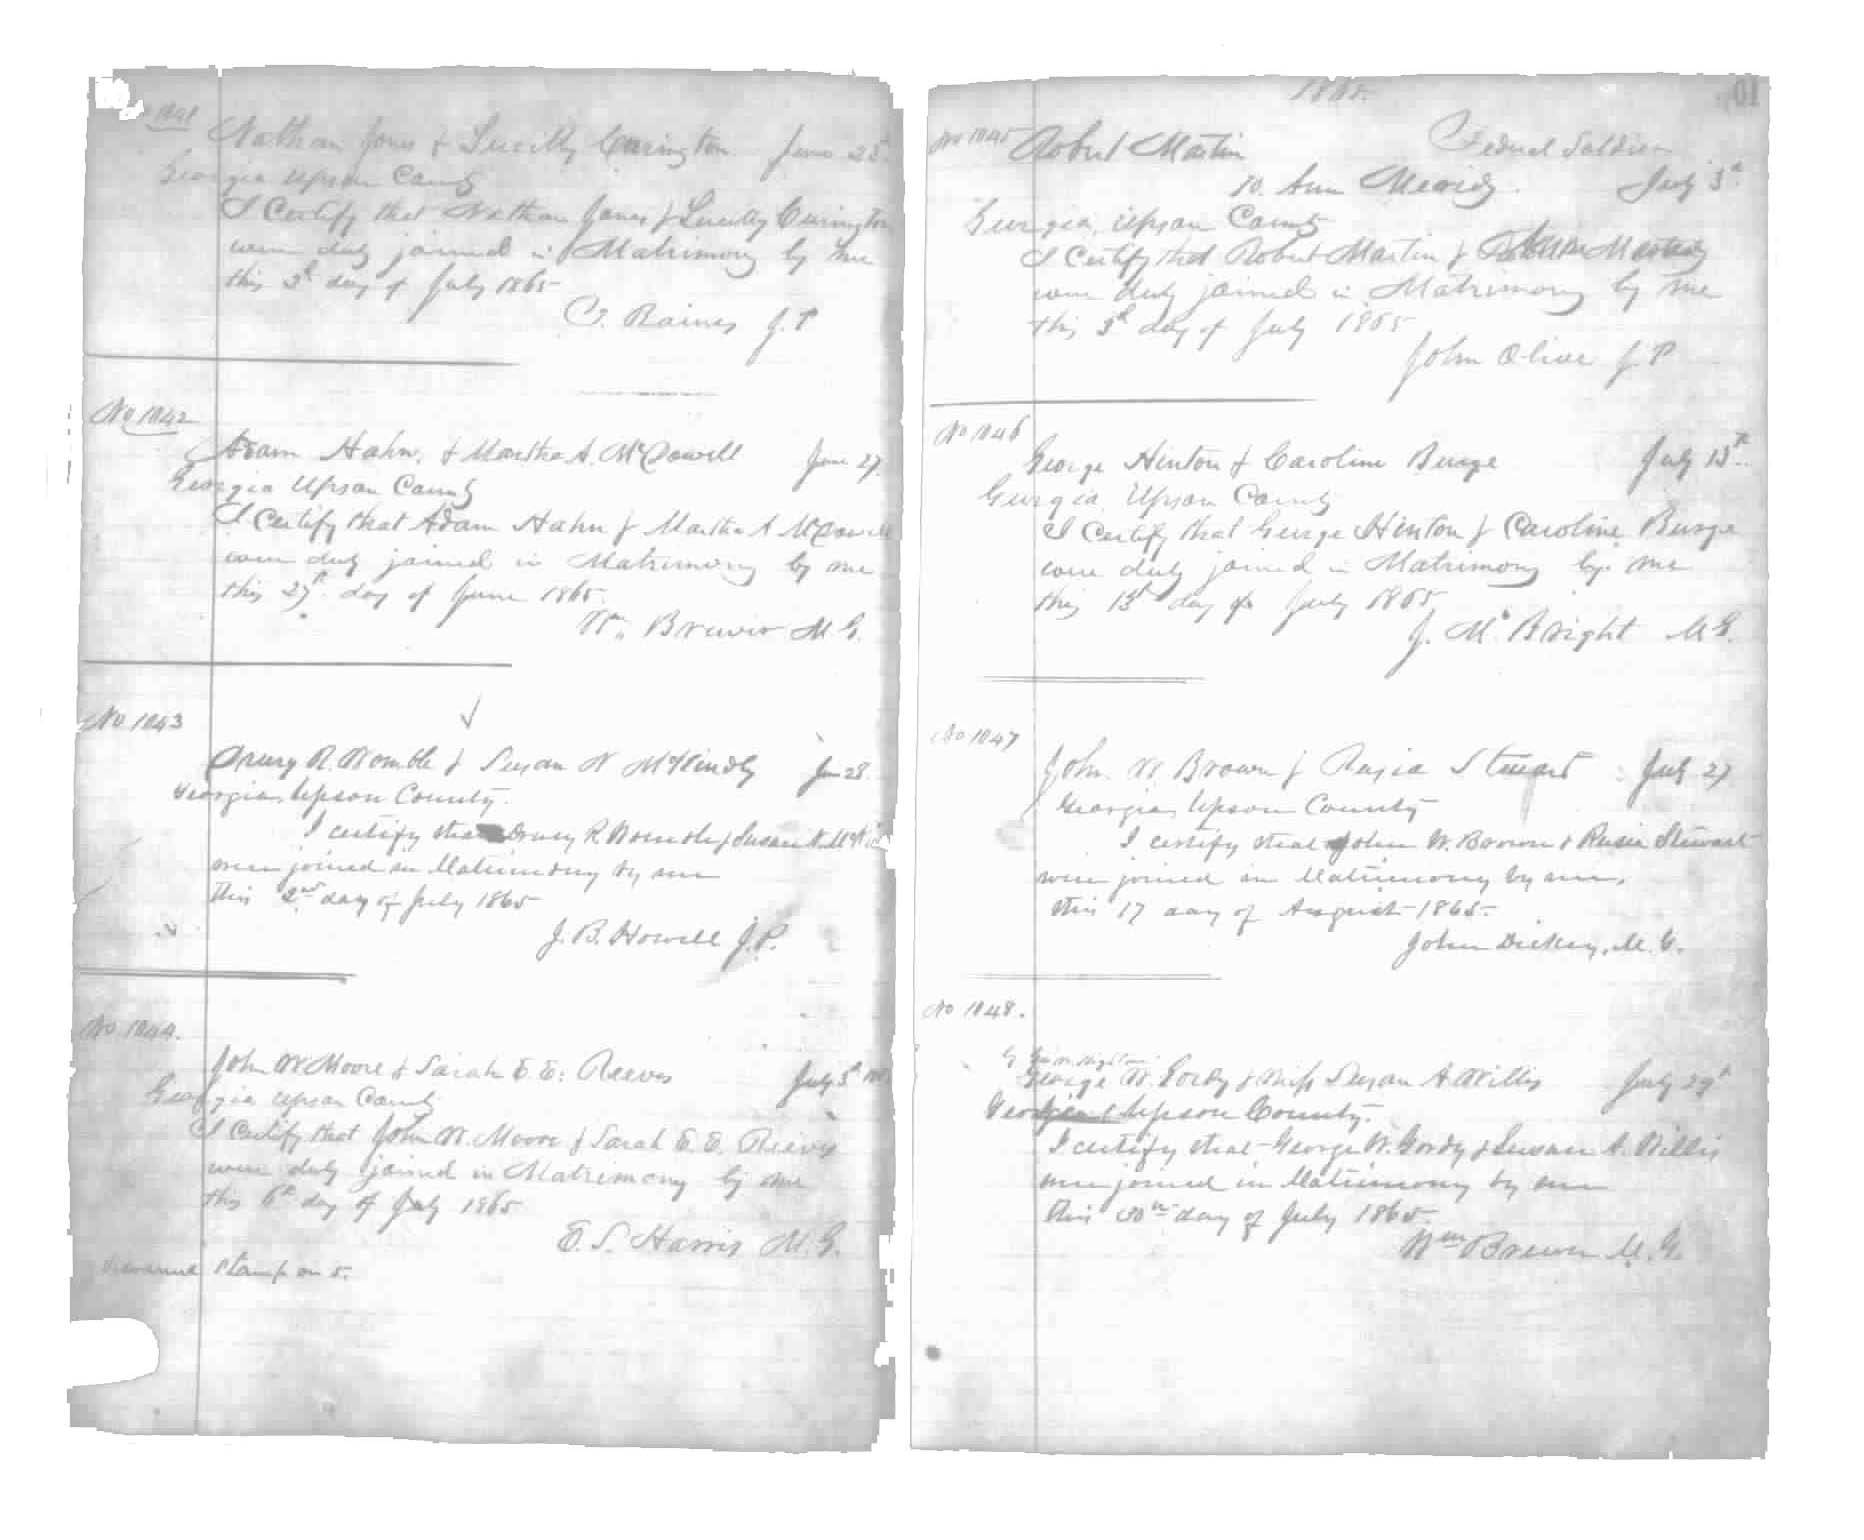 1041
Nathan Jones & Lucilly Carington June 28
Georgia Upson County
I Certify that Nathan Jones & Lucilly Carington
were duly joined in Matrimony by me
this 3d day of July 1865
C. Raines J.P
No 1042
Adam Hahn & Martha A. McDowell June 27
Georgia Upson County
I Certify that Adam Hahn & Martha A McDowell
were duly joined in Matrimony by me
this 27th day of June 1865
Wm Brewer M G.
No 1043
Drury R. Womble & Susan N McKindly Jun 28
Georgia Upson County.
I certify that Drury R Womble & Susan N. McKin
were joined in Matrimony by me
this 2nd day of July 1865
J. B. Howell J.P.
No 1044.
John W Moore & Sarah E. E. Reeves July 5th
Georgia Upson County
I Certify that John W. Moore & Sarah E. E. Reeves
were duly joined in Matrimony by me
this 6th day of July 1865
E. S. Harris M. G.
Revenue Stamp on 5.
1865
No 1045 Robert Martin Federal Soldier
to Ann July 3d
Georgia, Upson County
I Certify that Robert Martin &
were duly joined in Matrimony by me
this 3d day of July 1865
John Olive J P
No 1046
George Hinton & Caroline Burge July 13th
Georgia, Upson County
I Certify that George Hinton & Caroline Burge
were duly joined in Matrimony by me
this 13th day of July 1865
J. Mc Bright M G.
No 1047
John W Brown & Rusia Stewart July 27
Georgia, Upson County
I certify that John W. Brown & Rusia Stewart
were joined in Matrimony by me,
this 17 day of August 1865.
John Dickey, M. G.
No 1048.
George W. Gordy & Miss Susan A Willis July 29th
Georgia, Upson County.
I certify that George W. Gordy & Susan A. Willis
were joined in Matrimony by me
this 30th day of July 1865.
Wm Brewer M. G.